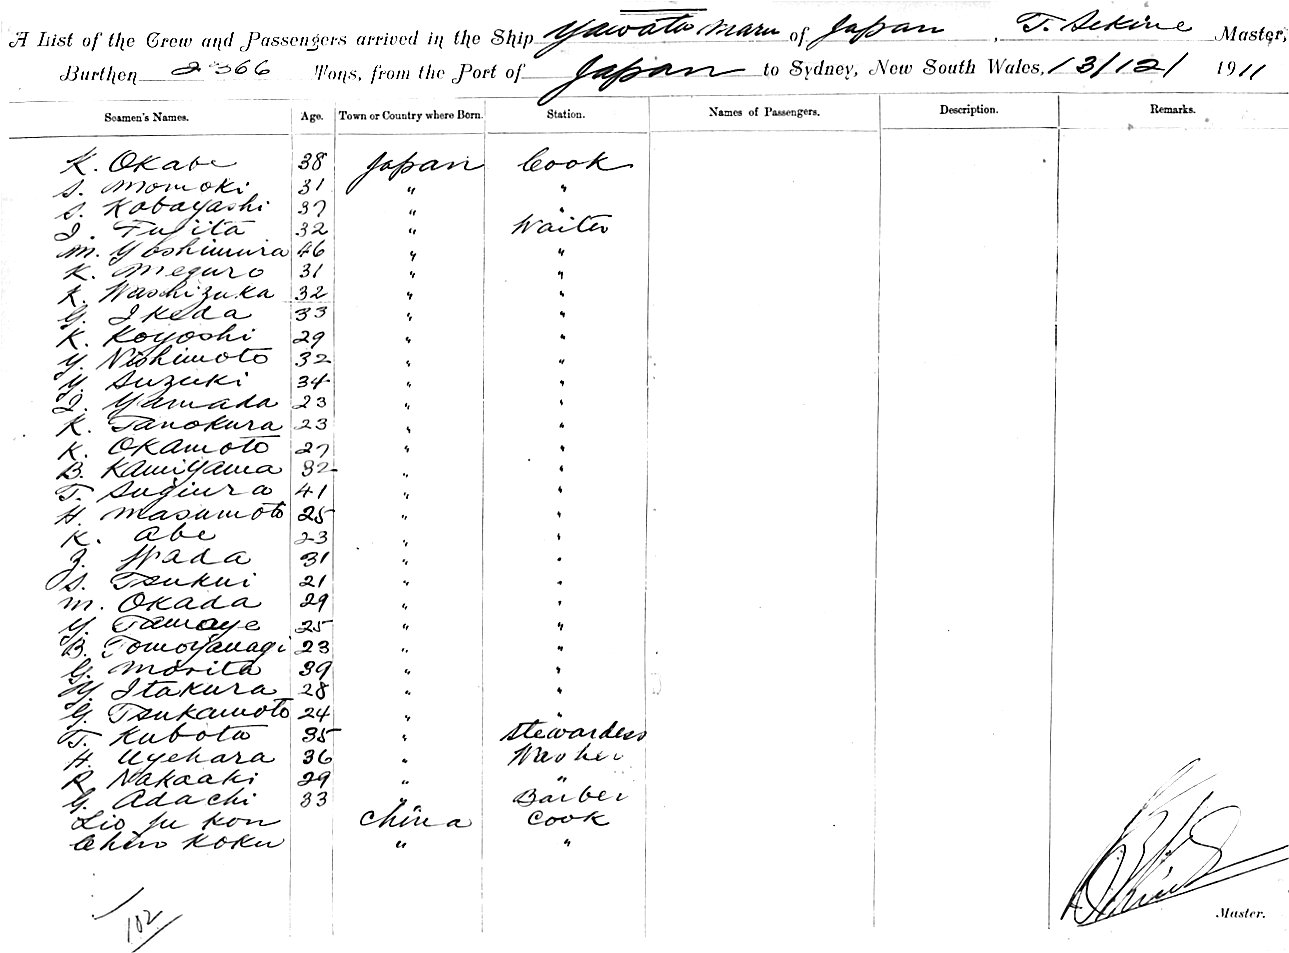 A List of the Crew and Passengers arrived in the Ship Yawata Maru of Japan, T. Sekine Master,
Burthen 2366 Tons, from the Port of Japan to Sydney, New South Wales, 13/12/1911
Seamen's Names. Age. Town or Country where Born. Station. Names of Passengers. Description. Remarks.
K. Okabe 38 Japan Cook
S. Momoki 31 " "
S. Kobayashi 37 " "
I. Fujita 32 " Waiter
M. Yoshimura 46 " "
K. Meguro 31 " "
K. Washizuka 32 " "
G. Ikeda 33 " "
K. Koyoshi 29 " "
Y. Nishimoto 32 " "
Y. Suzuki 34 " "
I. Yamada 23 " "
K. Tanokura 23 " "
K. Okamoto 27 " "
B. Kamiyama 32 " "
T. Sugiura 41 " "
H. Masumoto 25 " "
K. Abe 23 " "
Z. Wada 31 " "
S. Tsukui 21 " "
M. Okada 29 " "
Y. Tamaye 25 " "
B. Tomoyanagi 23 " "
G. Morita 39 " "
Y. Itakura 28 " "
G. Tsukamoto 24 " "
T. Kubota 35 " Stewardess
H. Uyehara 36 " Washer
R. Nakaaki 29 " "
G. Adachi 33 " Barber
Lio Ju Kon China Cook
Chin Koku " "
102
Master.